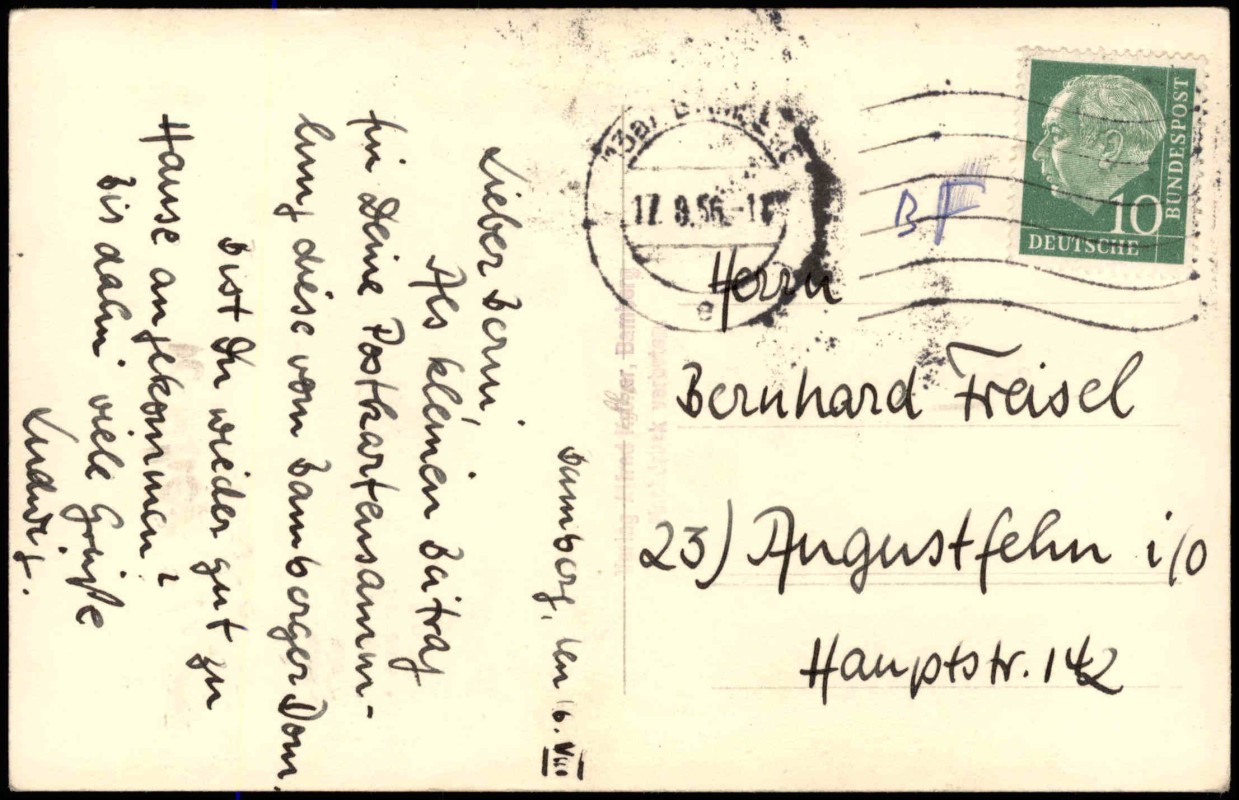 Bamberg, den 16. VIII
Lieber Berni,
Als kleinen Beitrag
für Deine Postkartensamm-
lung diese vom Bamberger Dom.
Bist Du wieder gut zu
Hause angekommen?
Bis dahin viele Grüße
Ludwig.
17. 8.56.-1
e
BF
10
DEUTSCHE
BUNDESPOST
Herrn
Bernhard Freisel
23) Augustfehn i/O
Hauptstr. 142